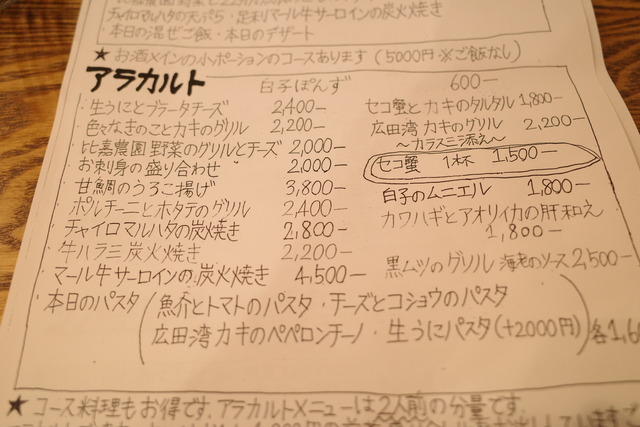 チャイロマルハタの天ぷら・足利マール牛サーロインの炭火焼き
・本日の混ぜご飯・本日のデザート
★お酒メインの小ポーションのコースあります(5000円※ご飯なし)
アラカルト
白子ぽんず 600-
・生うにとブラータチーズ 2,400-
・色々なきのことカキのグリル 2,200-
・比嘉農園野菜のグリルとチーズ 2,000-
・お刺身の盛り合わせ 2,000-
・甘鯛のうろこ揚げ 3,800-
・ポルチーニとホタテのグリル 2,400-
・チャイロマルハタの炭火焼き 2,800-
・牛ハラミ炭火焼き 2,200-
・マール牛サーロインの炭火焼き 4,500-
セコ蟹とカキのタルタル 1,800-
広田湾カキのグリル 2,200-
〜カラスミ添え〜
セコ蟹 1杯 1,500-
白子のムニエル 1,800-
カワハギとアオリイカの肝和え
1,800-
黒ムツのグリル 海老のソース 2,500-
本日のパスタ
魚介とトマトのパスタ・チーズとコショウのパスタ
広田湾カキのペペロンチーノ・生うにパスタ(+2000円)
各1,6
★コース料理もお得です。アラカルトメニューは2人前の分量です。